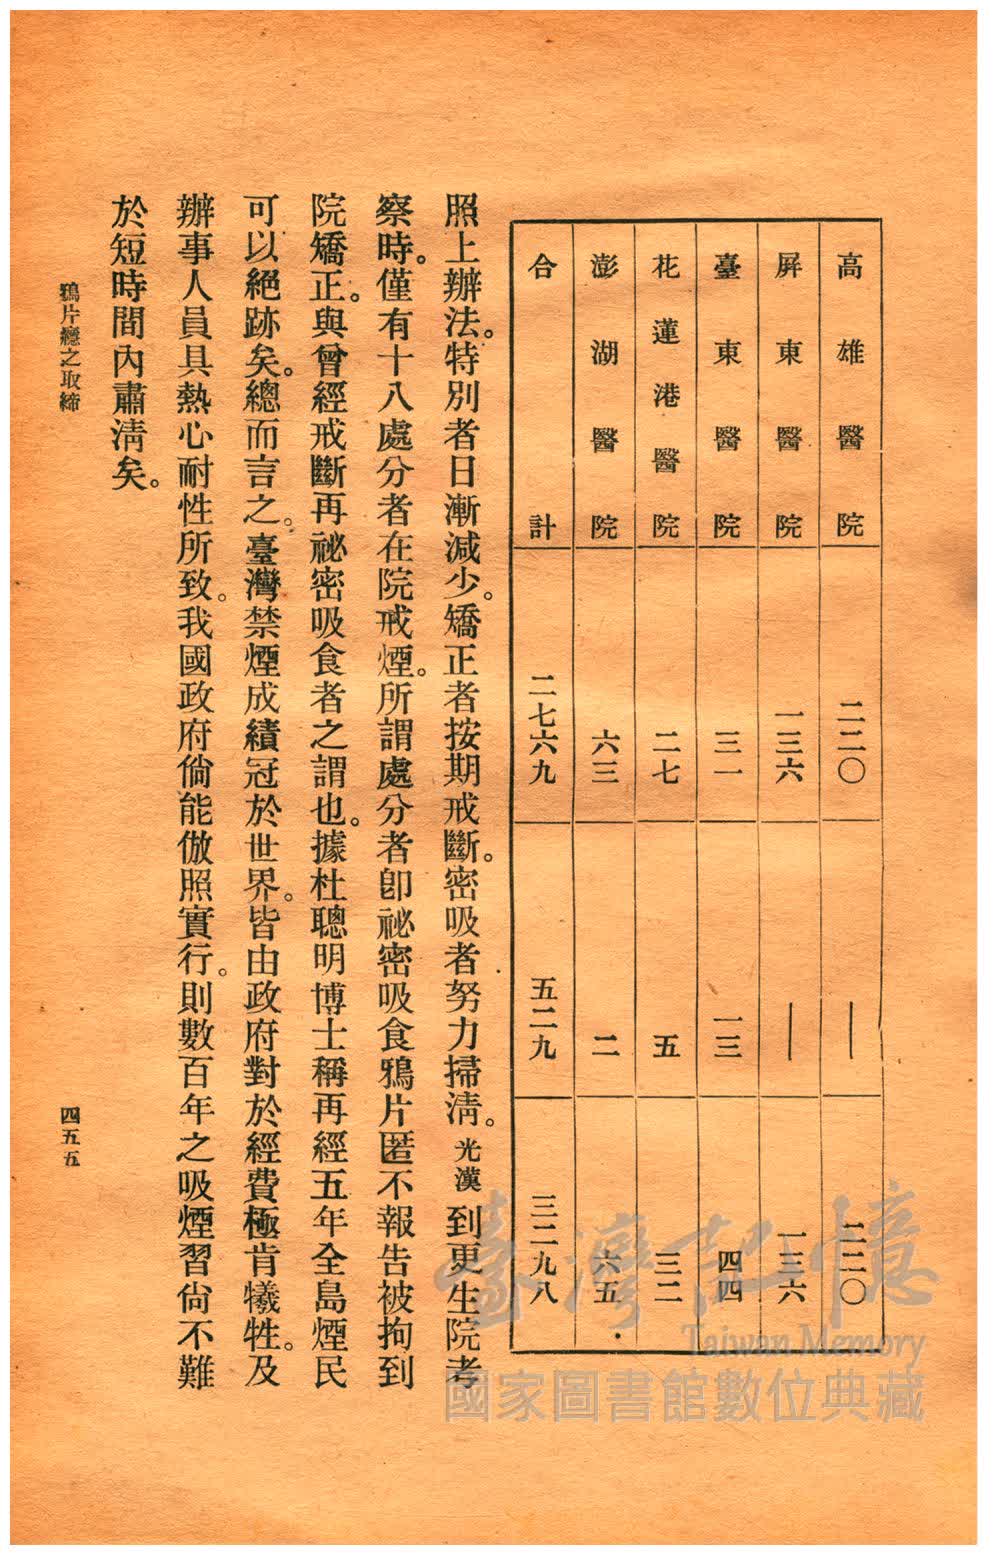 高雄醫院 二二〇 — 二二〇
屏東醫院 一三六 — 一三六
臺東醫院 三一 一三 四四
花蓮港醫院 二七 五 三二
澎湖醫院 六三 二 六五
合計 二七六九 五二九 三二九八
照上辦法。特別者日漸減少。矯正者按期戒斷。密吸者努力掃淸。光漢到更生院考
察時。僅有十八處分者在院戒煙。所謂處分者卽祕密吸食鴉片匿不報告被拘到
院矯正。與曾經戒斷再祕密吸食者之謂也。據杜聰明博士稱再經五年全島煙民
可以絕跡矣。總而言之。臺灣禁煙成績冠於世界。皆由政府對於經費極肯犧牲。及
辦事人員具熱心耐性所致。我國政府倘能倣照實行。則數百年之吸煙習尙不難
於短時間內肅淸矣。
鴉片癮之取締
四五五
臺灣記憶
Taiwan Memory
國家圖書館數位典藏